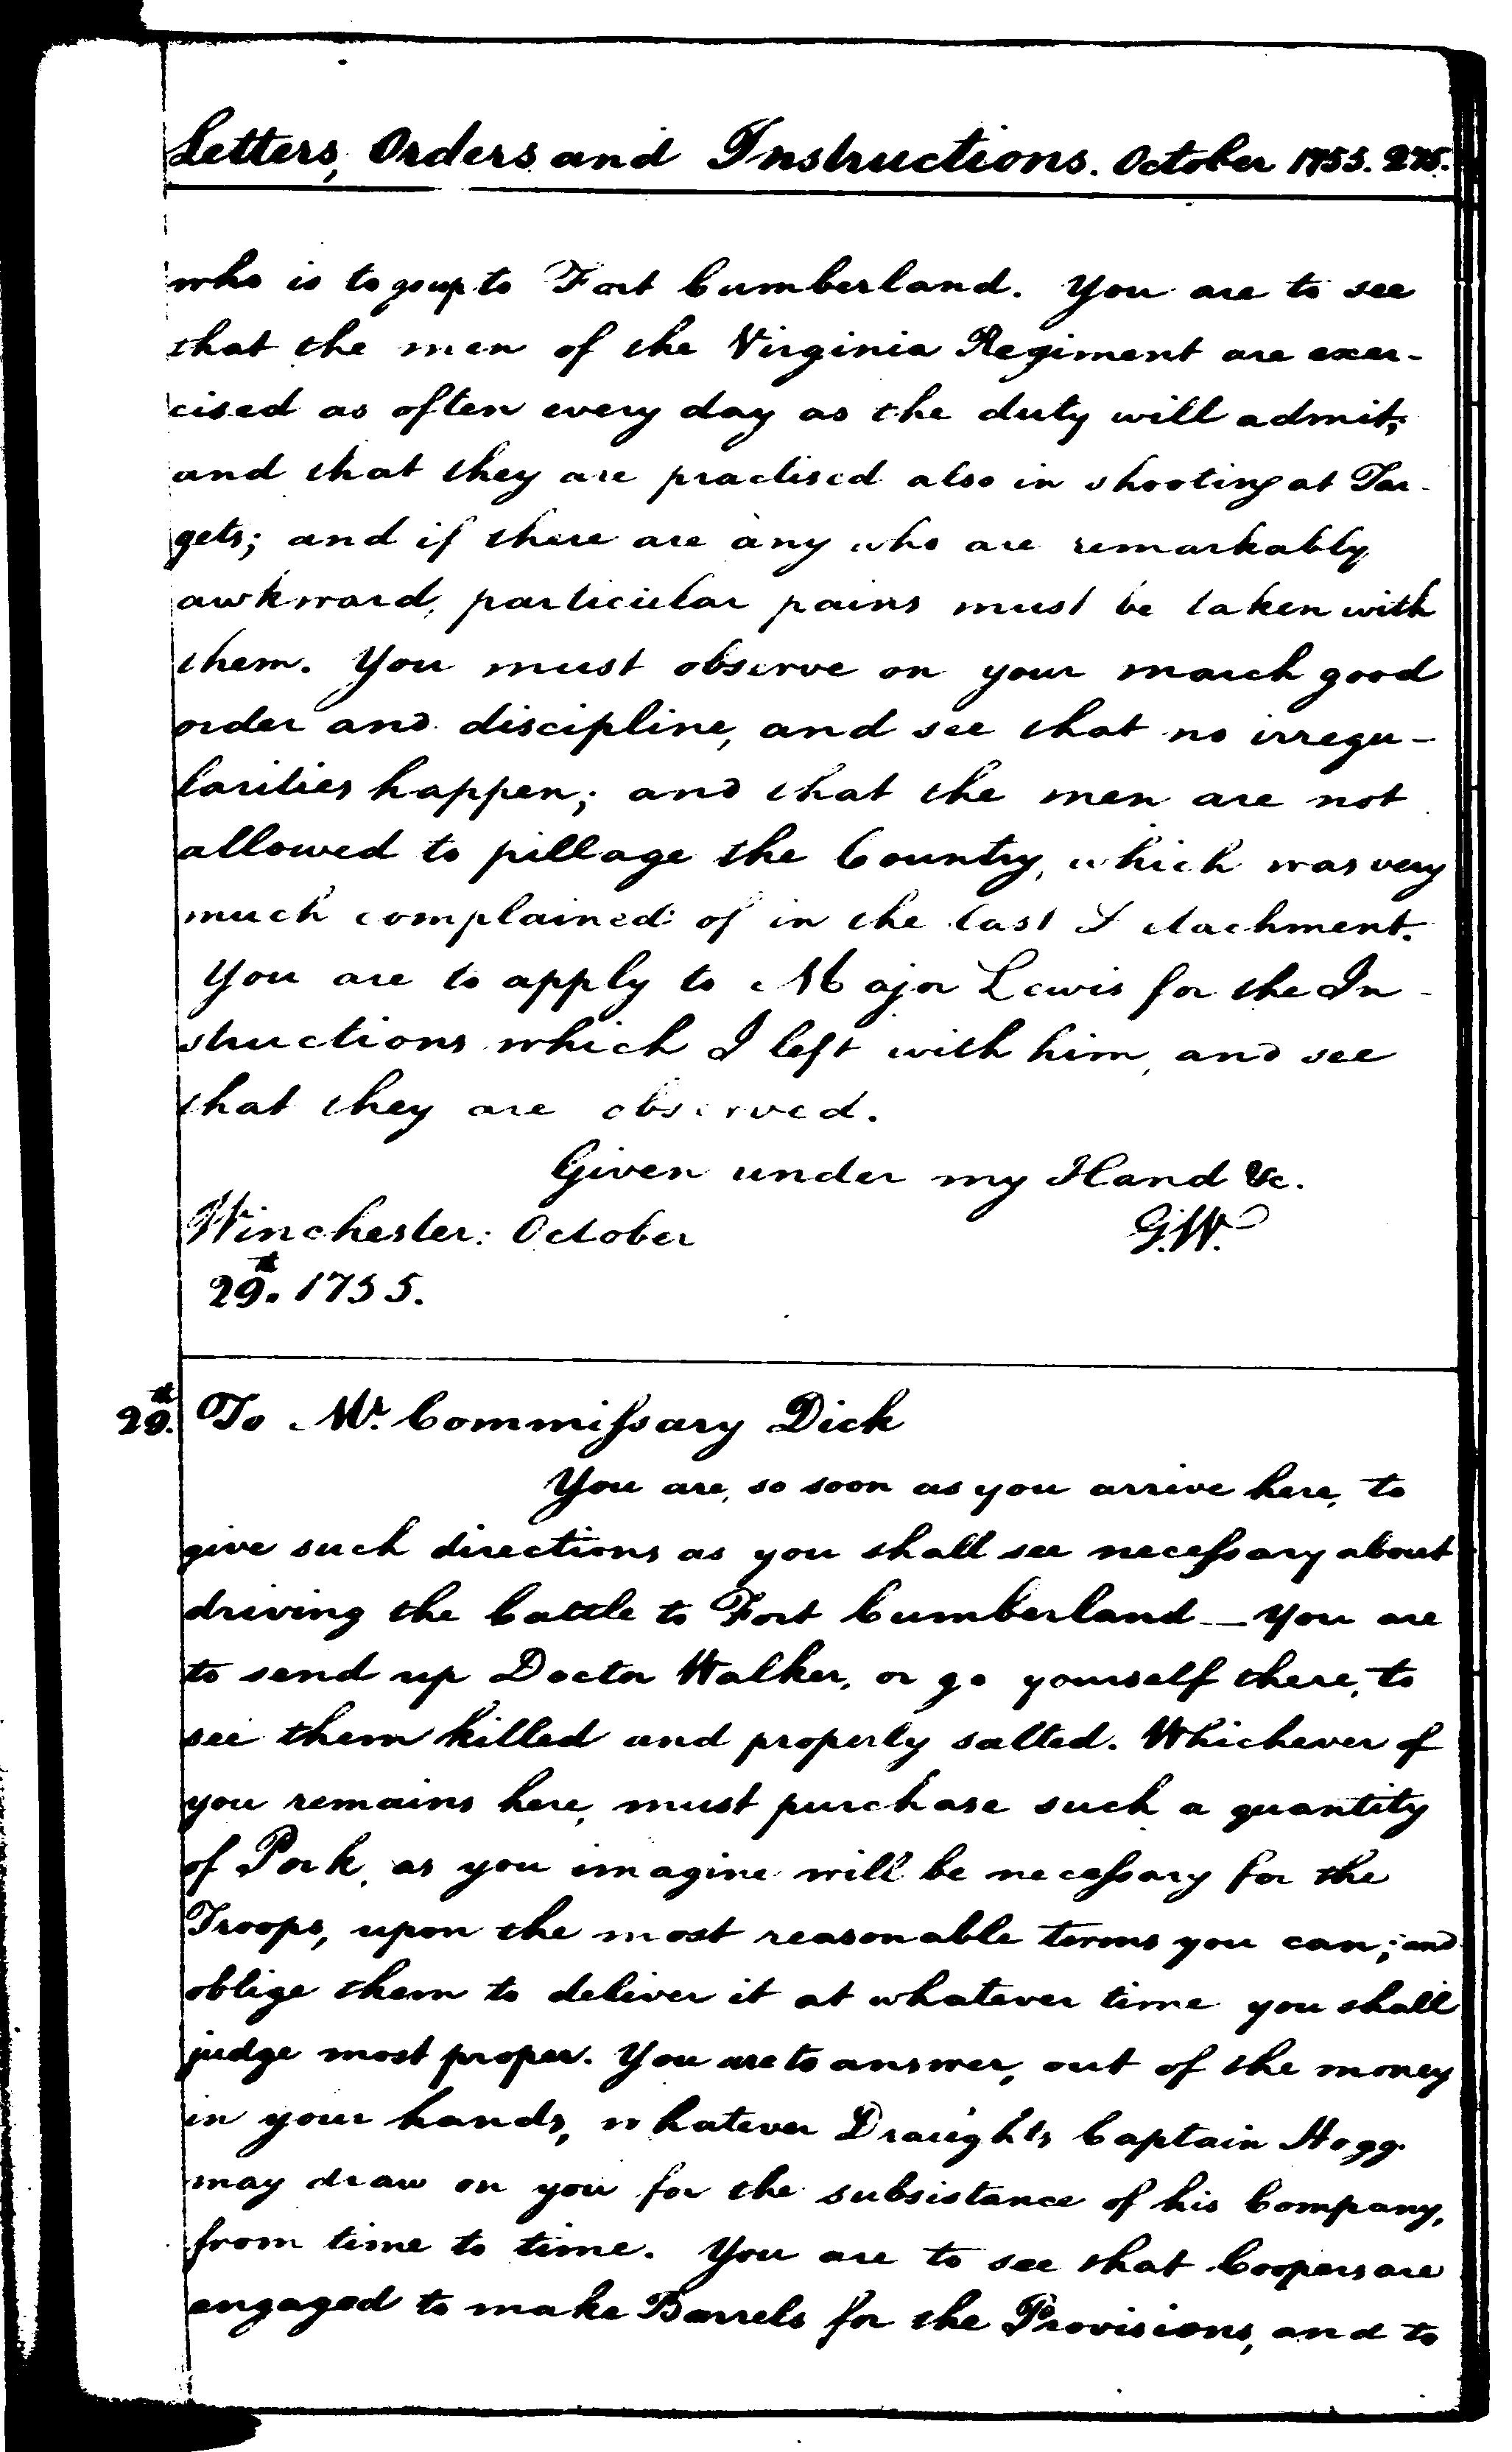 Letters, Orders and Instructions. October 1755. 275.
who is to go up to Fort Cumberland. You are to see
that the men of the Virginia Regiment are exer-
cised as often every day as the duty will admit;
and that they are practised also in shooting at Tar-
gets; and if there are any who are remarkably
awkward, particular pains must be taken with
them. You must observe on your march good
order and discipline, and see that no irregu-
larities happen; and that the men are not
allowed to pillage the Country, which was very
much complained of in the last Detachment.
You are to apply to Major Lewis for the In-
structions which I left with him, and see
that they are observed.
Given under my Hand &c.
Winchester: October G.W.
29.th 1755.
29.th To Mr. Commissary Dick
You are, so soon as you arrive here, to
give such directions as you shall see necessary about
driving the Cattle to Fort Cumberland — You are
to send up Doctor Walker, or go yourself there, to
see them killed and properly salted. Whichever of
you remains here, must purchase such a quantity
of Pork, as you imagine will be necessary for the
Troops, upon the most reasonable terms you can; and
oblige them to deliver it at whatever time you shall
judge most proper. You are to answer, out of the money
in your hands, whatever Draughts Captain Hogg
may draw on you for the subsistance of his Company,
from time to time. You are to see that Coopers are
engaged to make Barrels for the Provisions, and to